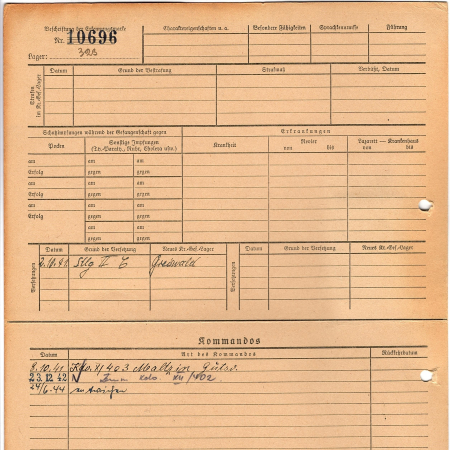 Beschriftung der Erkennungsmarke
Nr. 10696
Lager: 325
Charaktereigenschaften u. a.
Besondere Fähigkeiten
Sprachkenntnisse
Führung
Strafen im Kr.-Gef.-Lager
Datum Grund der Bestrafung Strafmaß Verbüßt, Datum
Schutzimpfungen während der Gefangenschaft gegen
Erkrankungen
Pocken
Sonstige Impfungen
(Ty.-Paraty., Ruhr, Cholera usw.)
Krankheit
Revier
von bis
Lazarett — Krankenhaus
von bis
am am am
Erfolg gegen gegen
am am am
Erfolg gegen gegen
am am am
Erfolg gegen gegen
am am
gegen gegen
Versetzungen
Datum Grund der Versetzung Neues Kr.-Gef.-Lager
Versetzungen
Datum Grund der Versetzung Neues Kr.-Gef.-Lager
2.10.41. Stlg II C Greifswald
Kommandos
Datum Art des Kommandos Rückkehrdatum
8.10.41 403
23.12.42 Kdo XII/402
24/6.44